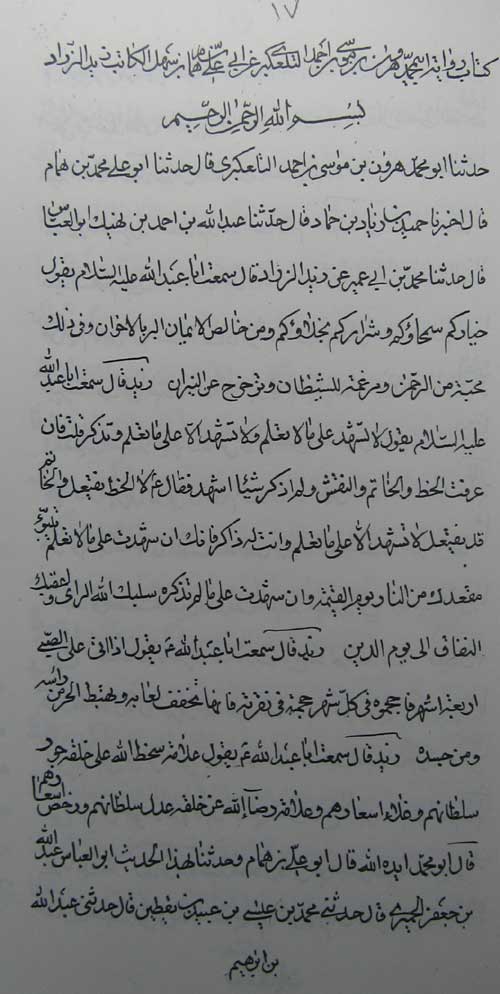 ١٧
كتاب رواية ابي محمد هرون بن موسى بن احمد التلعكبري عن ابي علي بن همام بن سهيل الكاتب زيد الزراد
بسم الله الرحمن الرحيم
حدثنا ابو محمد هرون بن موسى بن احمد التلعكبرى قال حدثنا ابو علي محمد بن همام
قال اخبرنا حميد بن زياد بن حماد قال حدثنا عبد الله بن احمد بن نهيك ابو العباس
قال حدثنا محمد بن ابي عمير عن زيد الزراد قال سمعت ابا عبد الله عليه السلام يقول
خياركم سمحاؤكم وشراركم بخلاؤكم ومن خالص الايمان البر بالاخوان وفي ذلك
محبة من الرحمن ومرغمة للشيطان وتزحزح عن النيران زيد قال سمعت ابا عبد الله
عليه السلام يقول لا تشهد على ما لا تعلم ولا تشهد الا على ما تعلم وتذكر قلت فان
عرفت الخط والخاتم والنقش ولم اذكر شيئا اشهد فقال ع لا الخط يفتعل والخاتم
قد يفتعل لا تشهد الا على ما تعلم وانت له ذاكر فانك ان شهدت على ما لا تعلم تتبوء
مقعدك من النار يوم القيمة وان شهدت على ما لم تذكره سلبك الله الراى واعقبك
النفاق الى يوم الدين زيد قال سمعت ابا عبد الله ع يقول اذا اتى على الصبي
اربعة اشهر فاحجموه في كل شهر حجمة في نقرته فانها تخفف لعابه وتهبط الحر من راسه
ومن جسده زيد قال سمعت ابا عبد الله ع يقول علامة سخط الله على خلقه جور
سلطانهم وغلاء اسعارهم وعلامة رضا الله عن خلقه عدل سلطانهم ورخص اسعارهم
قال ابو محمد ايده الله قال ابو علي بن همام وحدثنا بهذا الحديث ابو العباس عبد الله
بن جعفر الحميري قال حدثني محمد بن عيسى بن عبيد بن يقطين قال حدثني عبد الله
بن ابرهيم